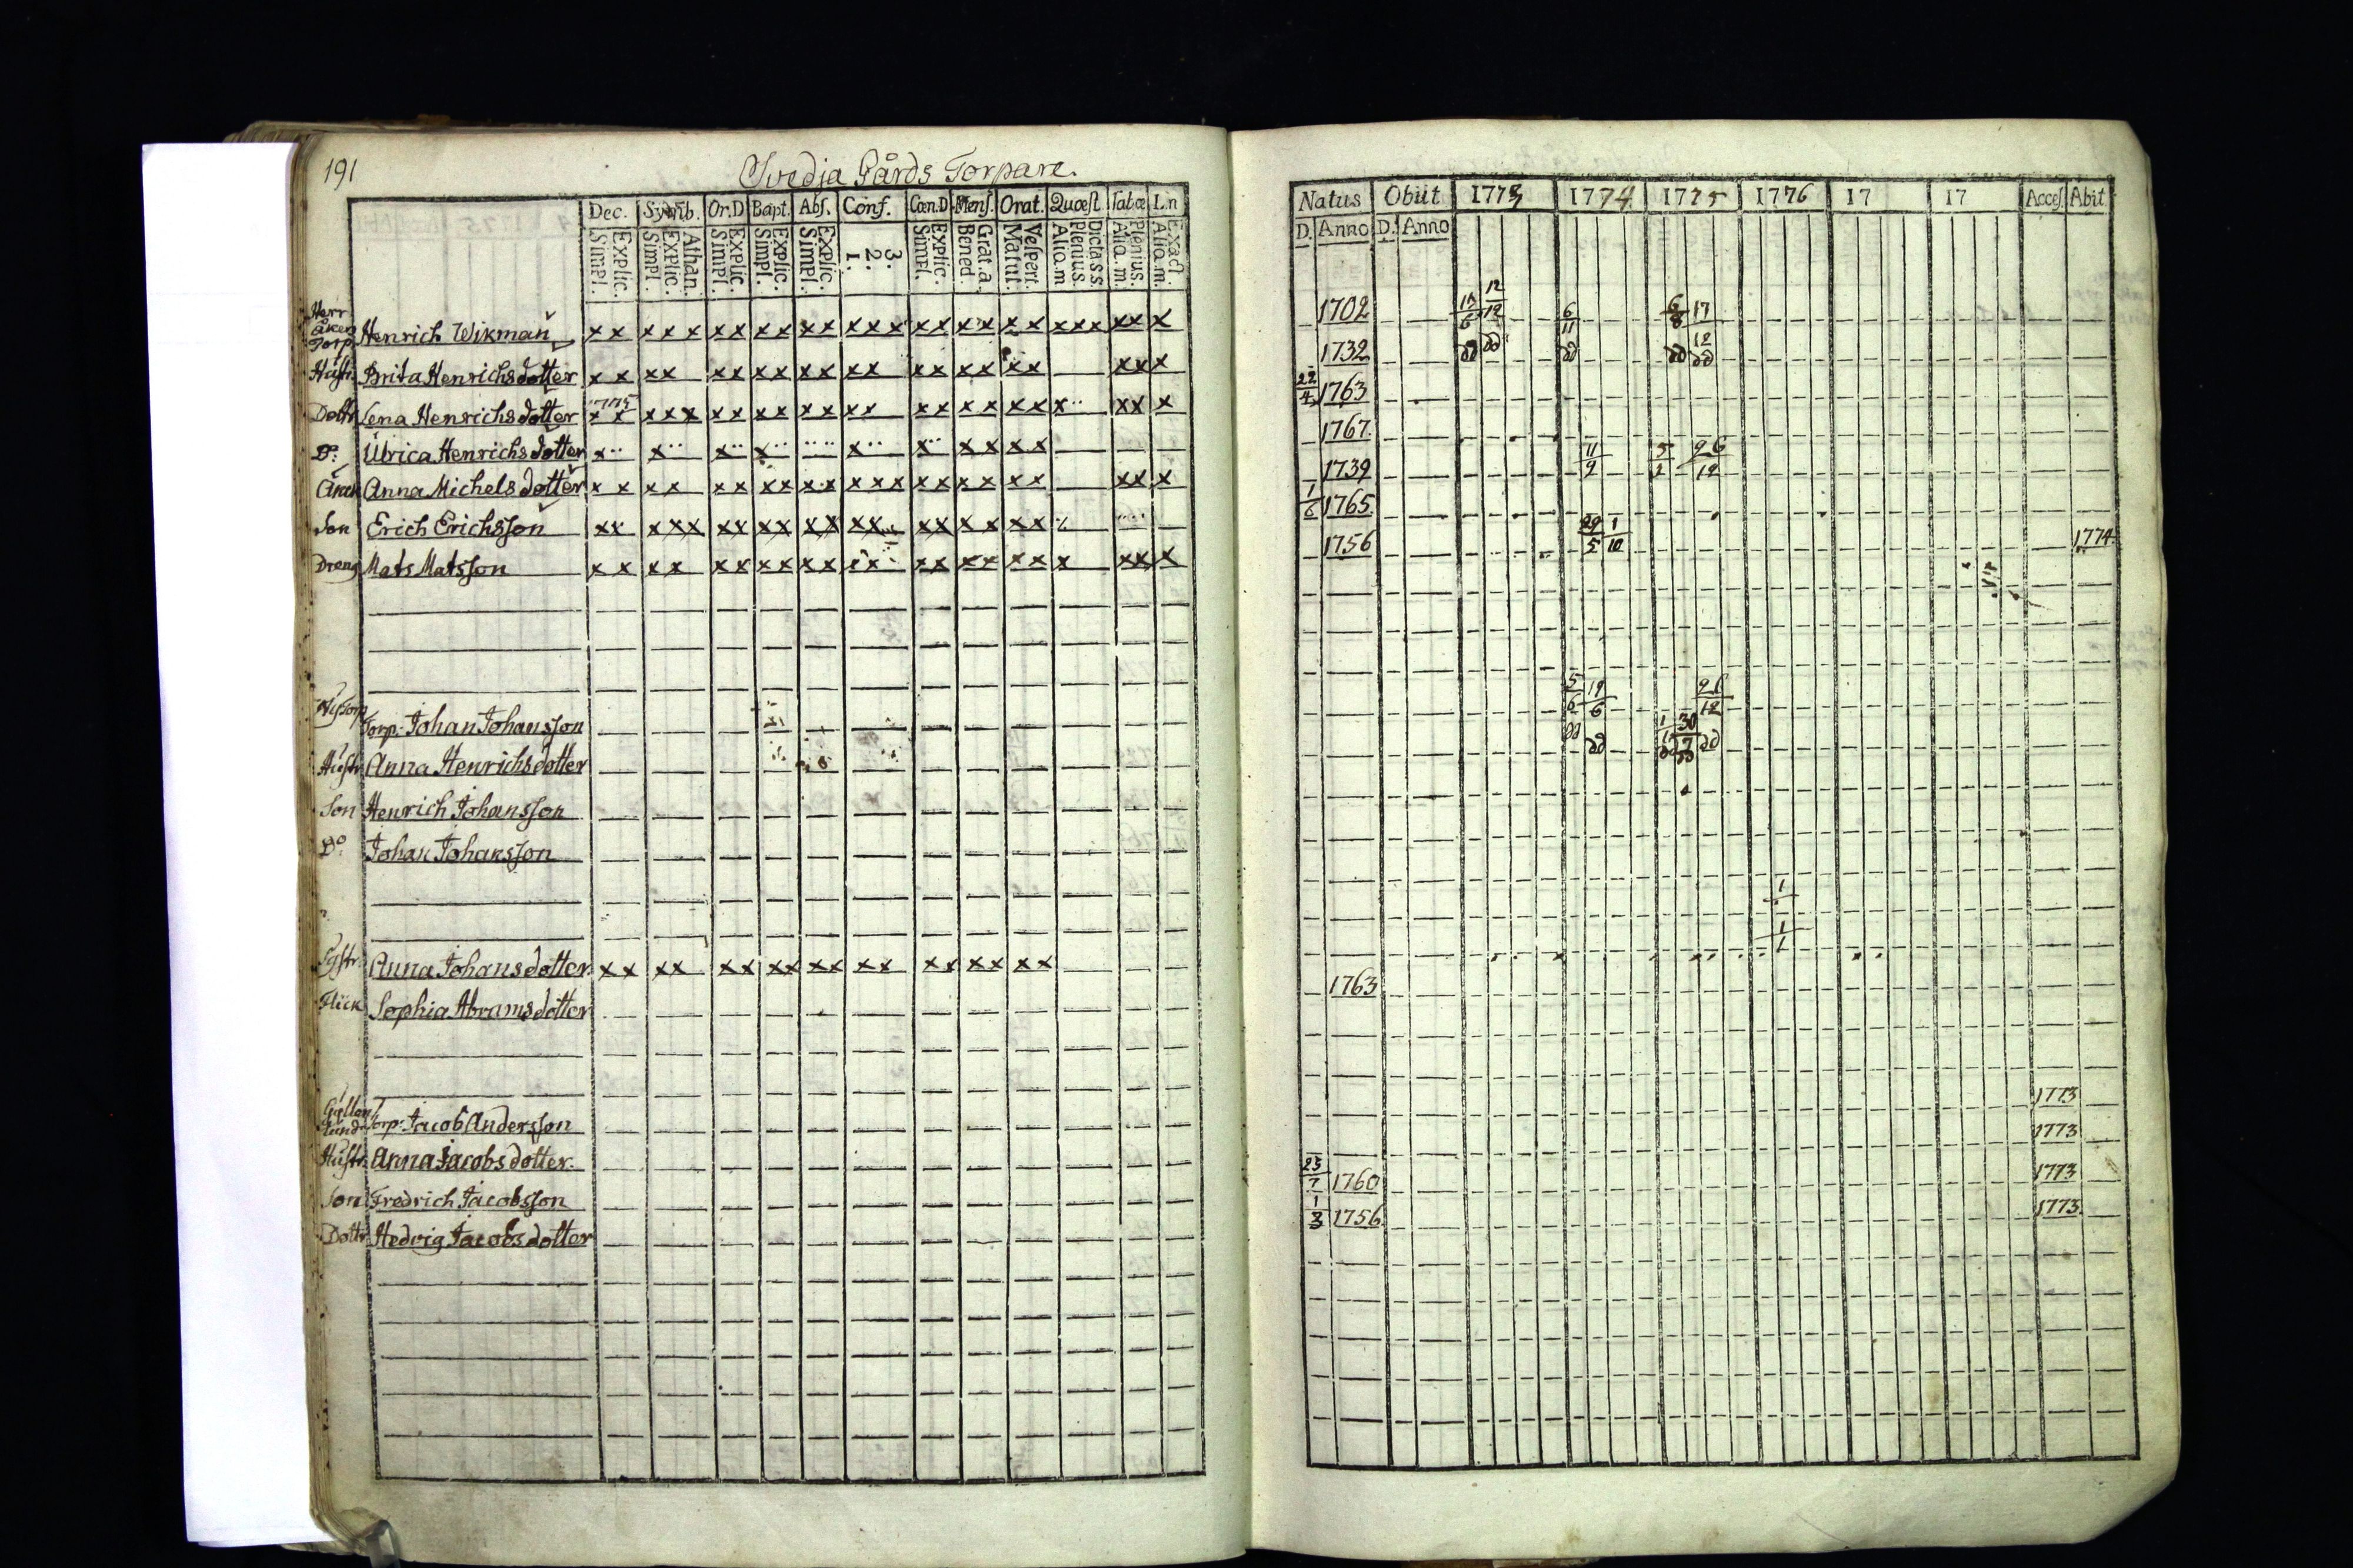 191
Svedja Gårds Torpare.
Dec. Symb. Or.D Bapt. Abs. Conf. Cœn.D Mens. Orat. Quæst. Tabæ L.n
Simpl. Explic. Simpl. Explic. Athan. Simpl. Explic. Simpl. Explic. Simpl. Explic. 1. 2. 3. Simpl. Explic. Bened. Grat.a. Matut. Vespert. Aliq.m Plenius. Dicta s.s. Aliq.m. Plenius. Aliq.m. Exact.
Herr
åker
Torp. Henrich Wikman x x x x x x x x x x x x x x x x x x x x x x x x x x
Hustr. Brita Henrichsdotter x x x x x x x x x x x x x x x x x x x x x
1775
Dottr Lena Henrichsdotter x x x x x x x x x x x x x x x x x x x x x x x
Do. Ulrica Henrichsdotter x x x x x x x x x x
Anna Michelsdotter x x x x x x x x x x x x x x x x x x x x x x
Son Erich Erichsson x x x x x x x x x x x x x x x x x x x
Dreng Mats Matsson x x x x x x x x x x x x x x x x x x x x x x
Torp. Johan Johansson
Hustr. Anna Henrichsdotter
Son Henrich Johansson
Do. Johan Johansson
Anna Johansdotter x x x x x x x x x x x x x x x x x x
Flick Sophia Abramsdotter
Torp. Jacob Andersson
Hustr. Anna Jacobsdotter.
Son Fredrich Jacobsson
Dottr Hedvig Jacobsdotter
Natus Obiit 1773 1774 1775 1776 17 17 Acces. Abit.
D. Anno D. Anno
1702 12/12 6/11 6/8 17/12
1732 dd dd dd dd dd
22/4 1763
1767
1739 11/9 5/2 26/12
1/6 1765
1756 29/5 1/10 1774
5/6 19/6 1/1 30/7 26/12
dd dd dd dd dd
1
1/1
1763
1773
1773
23/7 1760 1773
1/3 1756 1773